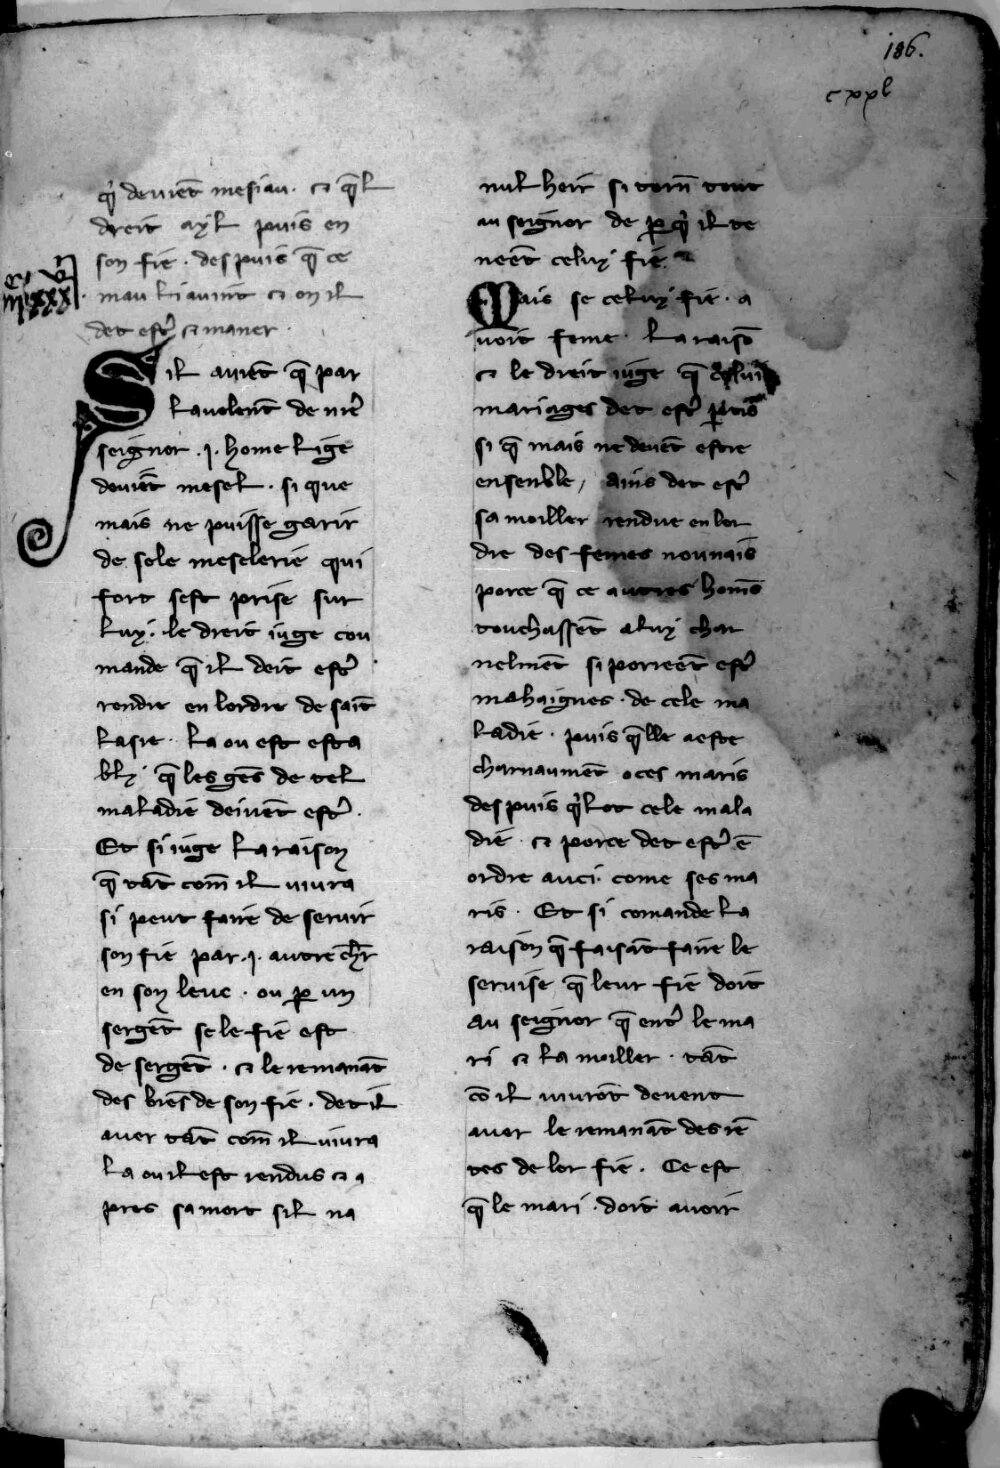 186.
cxxl
q̃ deuiẽt mesiau · ⁊ q̃l
dreit a yl puis en
son fie · despuis q̃ ce
mau li auint ⁊ on il
det estr̃ ⁊ maner ·
Sil auiẽt q̃ par
la uolent de nr̃e
seignor · j · home lige
deuiẽt mesel · si que
mais ne puisse garir
de sele meselerie qui
fort sest prise sur
luy · le dreit iuge cou
mande q̃ il doit estr̃
rendre en lordre de saĩt
lasre · la ou est esta
bly q̃ les gẽs de tel
maladie deiuẽt estr̃ ·
Et si iuge la raison
q̃ tãt com̃ il uiura
si peut faire de seruir
son fie par · j · autre chr̃
en son leuc · ou p̱ un
sergẽt se le fie est
de sergẽt · ⁊ le remanãt
des biẽs de son fie · det il
auer tãt com̃ il uiura
la ou il est rendus ⁊ a
pres sa mort sil na
nul heir si torñ tout
au seignor de p̱ q̃ il te
neẽt celuy fie
Mais se celuy fie · a
uoit feme · la raisõ
⁊ le dreit iuge q̃ celui
mariages det estr̃ p̱tis
si q̃ mais ne deuẽt estre
ensenble, ains det estr̃
sa moiller rendue en lor
dre des femes nounais
porce q̃ ce autres hom̃s
touchassẽt a luy char
nelmẽt si poreẽt estr̃
mahaignes · de cele ma
ladie · puis q̃lle a este
charnaumẽt o ces maris
despuis q̃l ot cele mala
die · ⁊ porce det estr̃ ẽ
ordre auci · come ses ma
ris · Et si comande la
raison q̃ faisãt faire le
seruise q̃ leur fie doit
au seignor q̃ entr̃ le ma
ri ⁊ la moiller · tãt
cõ il uiurõt deuent
auer le remanãt des rẽ
tes de lor fie · Ce est
q̃ le mari · doit auoir